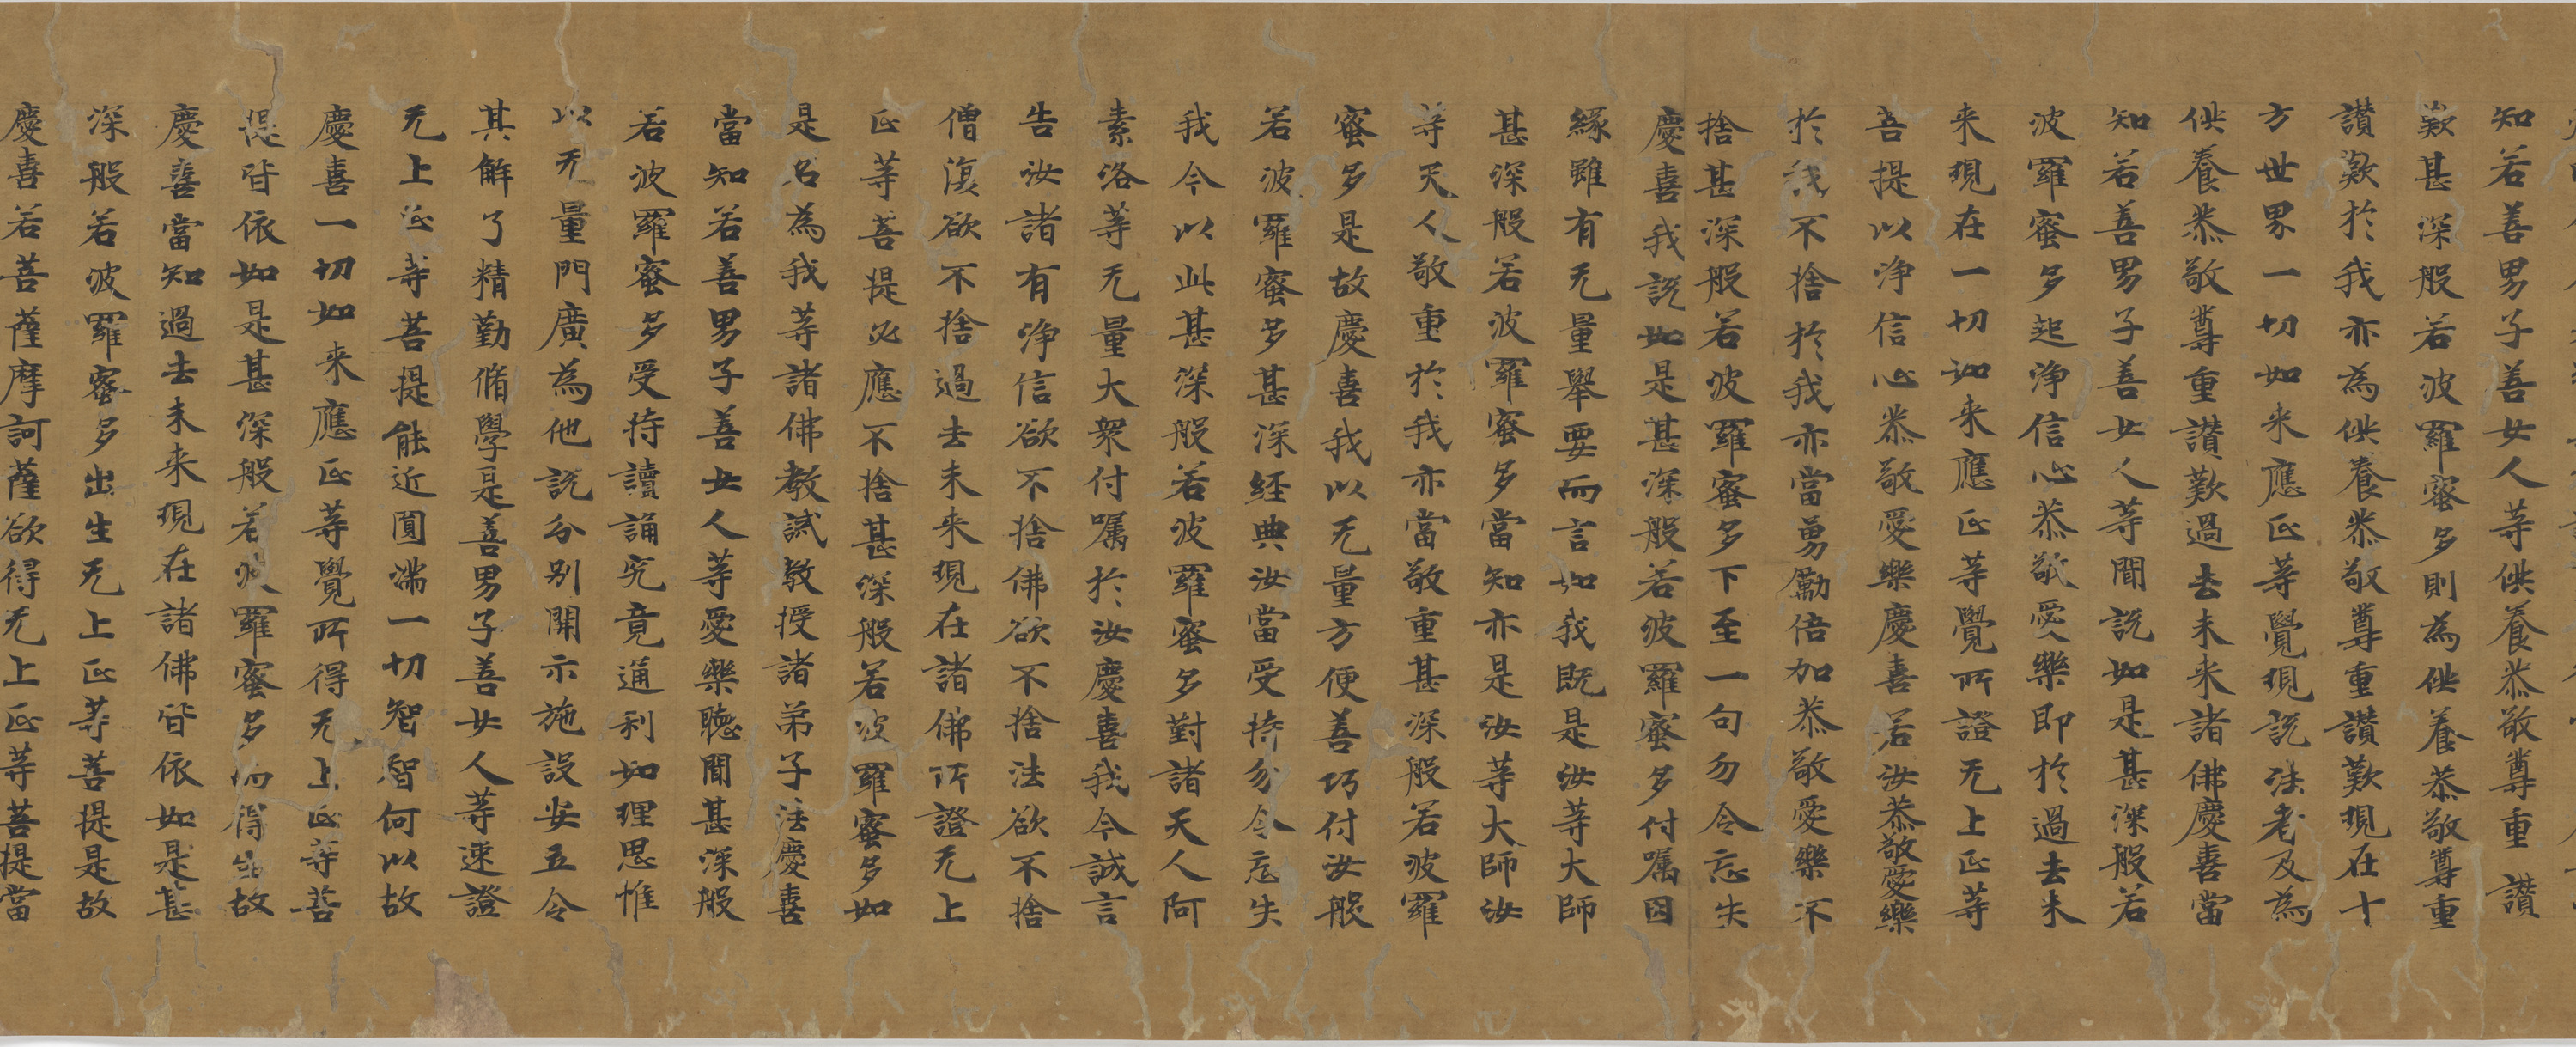 知若善男子善女人等供養恭敬尊重讃
歎甚深般若波羅蜜多則為供養恭敬尊重
讃歎於我亦為供養恭敬尊重讃歎現在十
方世界一切如来應正等覺現說法者及為
供養恭敬尊重讃歎過去未来諸佛慶喜當
知若善男子善女人等聞說如是甚深般若
波羅蜜多起淨信心恭敬愛樂即於過去未
来現在一切如来應正等覺所證无上正等
菩提以淨信心恭敬愛樂慶喜若汝恭敬愛樂
於我不捨於我亦當勇勵倍加恭敬愛樂不
捨甚深般若波羅蜜多下至一句勿令忘失
慶喜我說如是甚深般若波羅蜜多付囑因
緣雖有无量舉要而言如我既是汝等大師
甚深般若波羅蜜多當知亦是汝等大師汝
等天人敬重於我亦當敬重甚深般若波羅
蜜多是故慶喜我以无量方便善巧付汝般
若波羅蜜多甚深經典汝當受持勿令忘失
我今以此甚深般若波羅蜜多對諸天人阿
素洛等无量大衆付囑於汝慶喜我今誠言
告汝諸有淨信欲不捨佛欲不捨法欲不捨
僧復欲不捨過去未来現在諸佛所證无上
正等菩提必應不捨甚深般若波羅蜜多如
是名為我等諸佛教誡教授諸弟子法慶喜
當知若善男子善女人等愛樂聽聞甚深般
若波羅蜜多受持讀誦究竟通利如理思惟
以无量門廣為他說分別開示施設安立令
其解了精勤脩學是善男子善女人等速證
无上正等菩提能近圓滿一切智智何以故
慶喜一切如来應正等覺所得无上正等菩
提皆依如是甚深般若波羅蜜多而得生故
慶喜當知過去未来現在諸佛皆依如是甚
深般若波羅蜜多出生无上正等菩提是故
慶喜若菩薩摩訶薩欲得无上正等菩提當